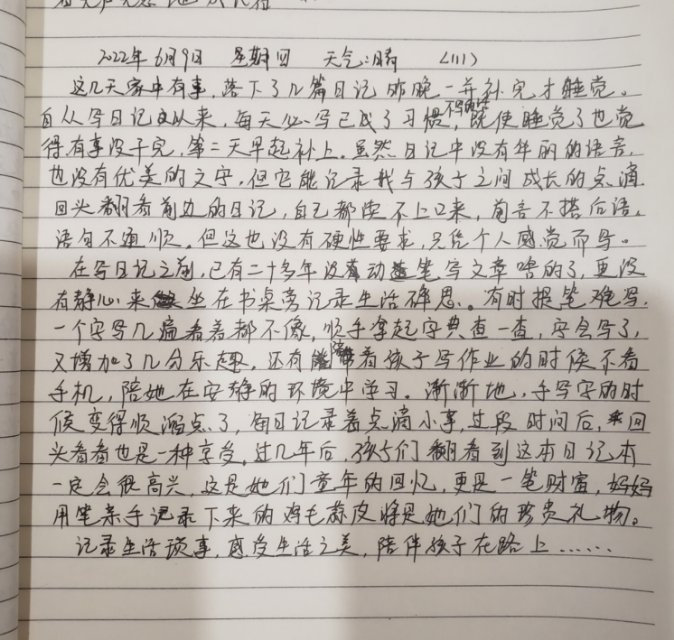 2022年6月9日 星期四 天气:晴 (111)
这几天家中有事,落下了几篇日记昨晚一并补完才睡觉。
自从写日记以来,每天必写已成了习惯,不写的话既使睡觉了也觉
得有事没干完,第二天早起补上。虽然日记中没有华丽的语言,
也没有优美的文字,但它能记录我与孩子之间成长的点滴
回头翻看前边的日记,自己都读不上口来,前言不搭后语,
语句不通顺。但这也没有硬性要求,只凭个人感觉而写。
在写日记之前,已有二十多年没有动笔写文章啥的了,更没
有静心来坐在书桌旁记录生活碎思。有时提笔难写,
一个字写几遍看着都不像,顺手拿起字典查一查,字会写了,
又增加了几分乐趣,还有陪着孩子写作业的时候不看
手机,陪她在安静的环境中学习。渐渐地,手写字的时
候变得顺溜点了,每日记录着点滴小事,过段时间后,回
头看看也是一种享受,过几年后,孩子们翻看到这本日记本
一定会很高兴,这是她们童年的回忆,更是一笔财富,妈妈
用笔亲手记录下来的鸡毛蒜皮将是她们的珍贵礼物。
记录生活琐事,感受生活之美,陪伴孩子在路上……